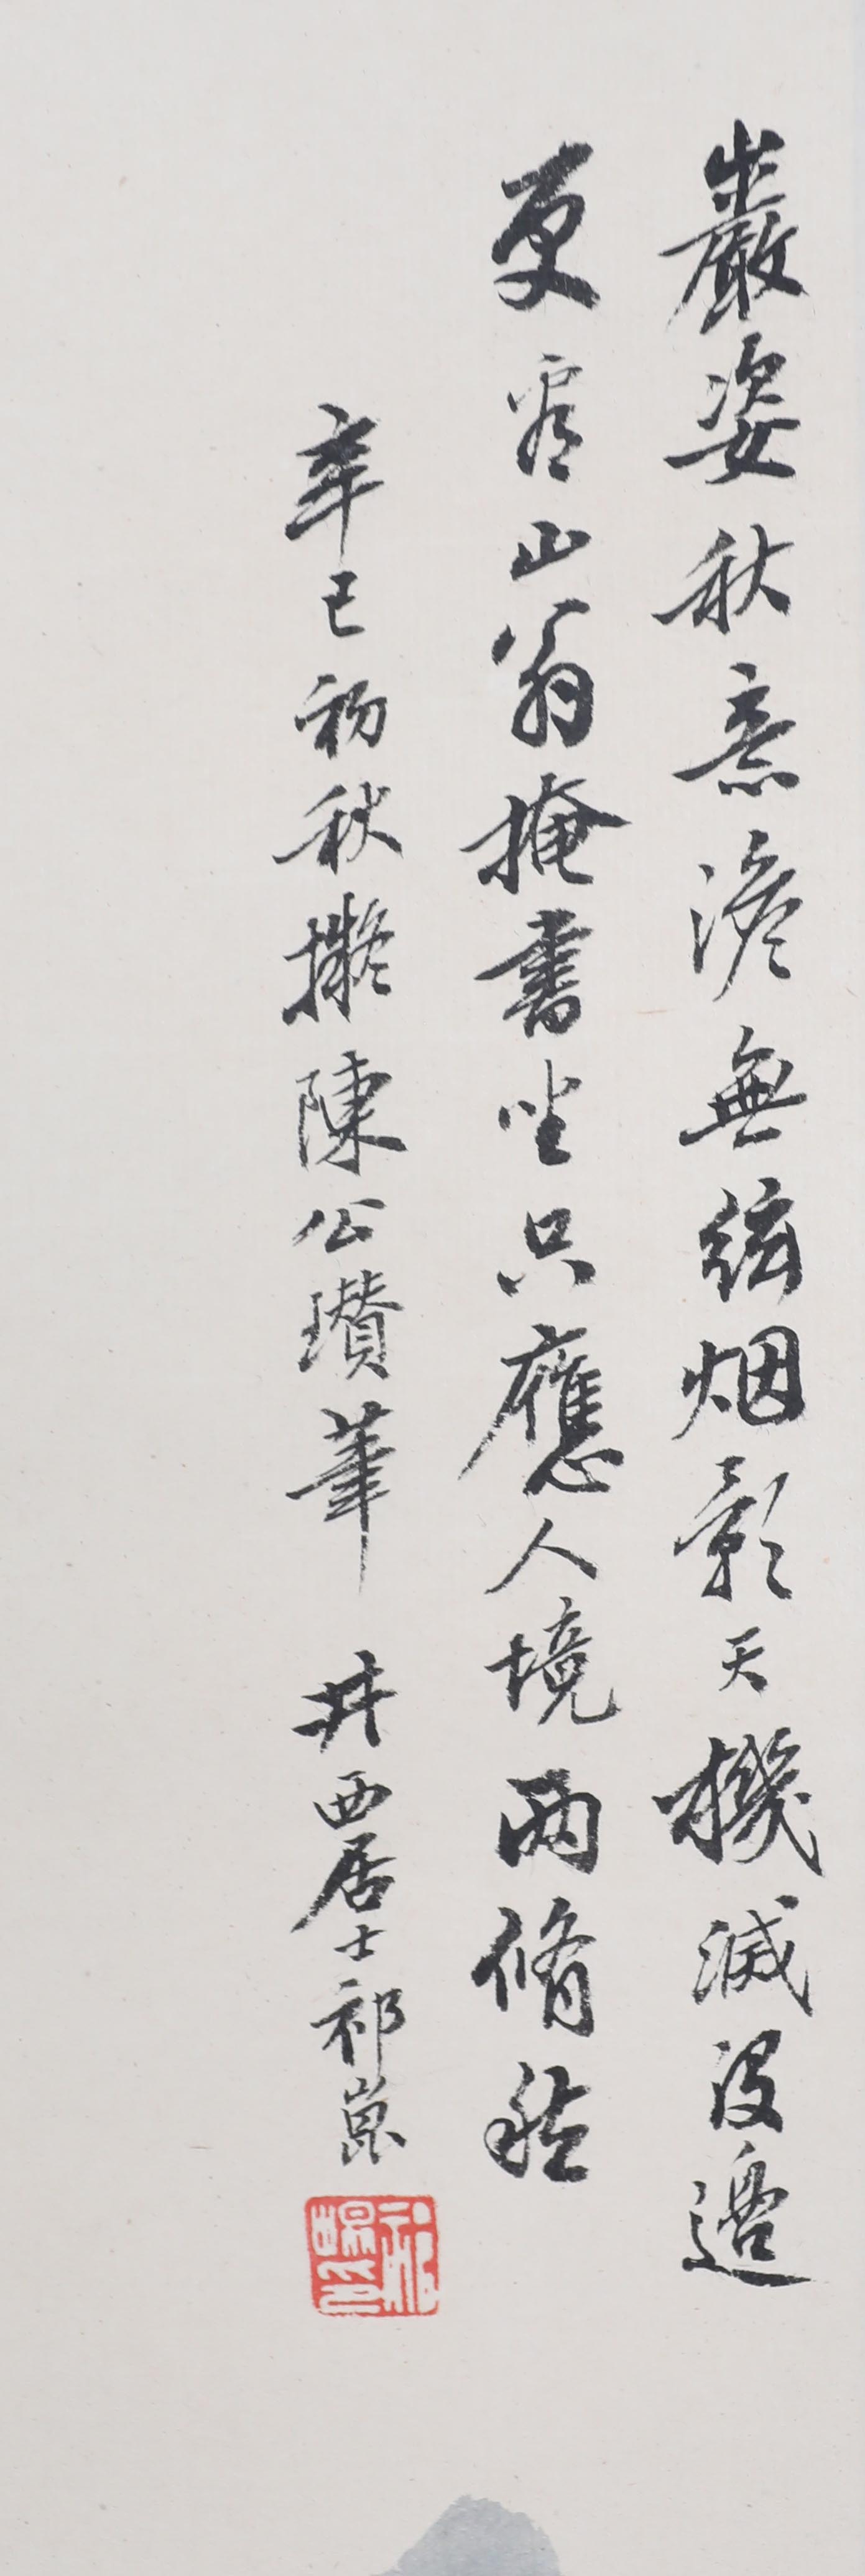 巖姿秋意澹無絃烟彩天機滅沒邊
更看山翁掩書坐只應人境兩翛然
辛巳初秋擬陳公瓚筆 井西居士祁崑
祁崑印